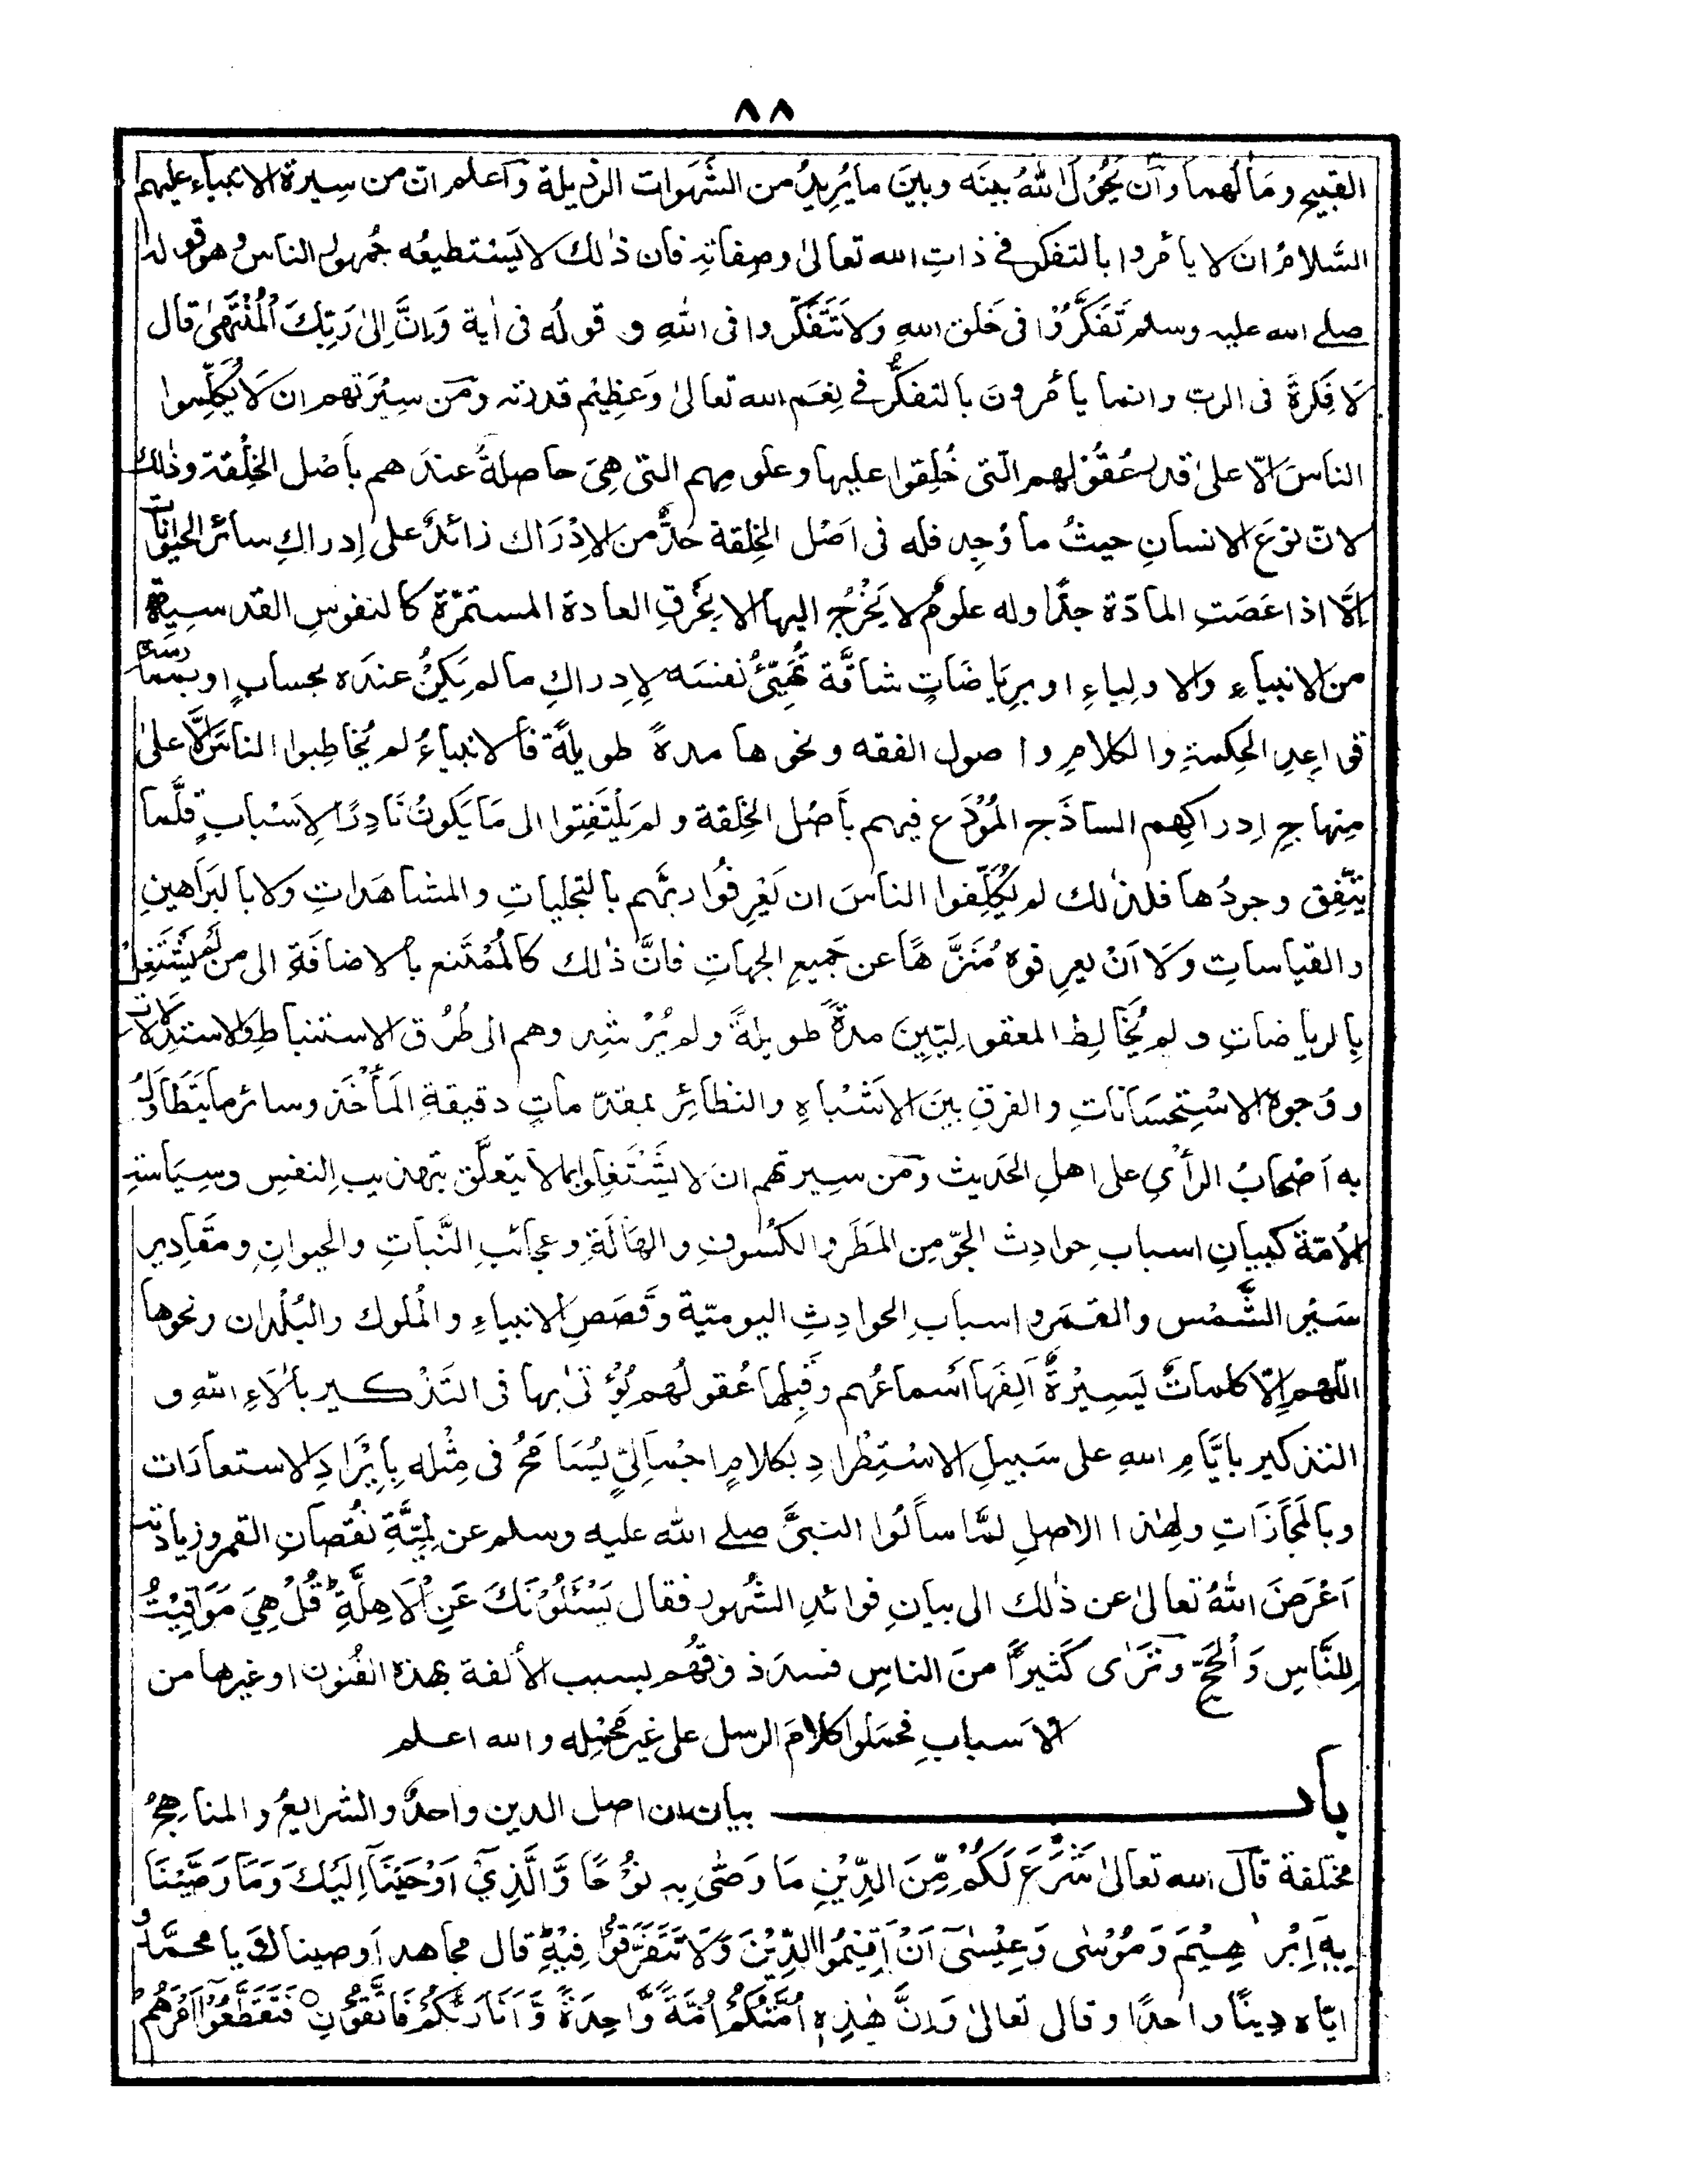 ٨٨
القبيح ومالَهما وآن يَّحُوْلَ اللّٰهُ بينَه وبينَ ما يُرِيدُ من الشَّهَوات الرذيلة وٓاعلم انّ من سِيرة الانبياءِ عليهم
السَّلامُ ان لا يأمُروا بالتفكر فے ذاتِ الله تعالىٰ وصِفاتهٖ فان ذٰلك لا يَسْتطيعُه جُمهورُ الناس وهو قوله
صلے الله عليه وسلم تَفَكَّرُوْا فى خَلقِ اللهِ وَلَا تَتَفَكَّروا فى اللّٰهِ و قولُه فى اٰية وَاِنَّ اِلىٰ رَبِّكَ الْمُنْتَهىٰ قال
لَا فِكرةَ فى الربّ وانما يأمُرون بالتفكُّر فے نِعَم الله تعالىٰ وَعَظِيْم قدرته ومٓن سِيْرَتهم ان لَا يُكَلِّموا
الناسَ الّا علىٰ قدر عُقُوْلِهم الّتى خُلِقوا عليها وعلومِهم التى هِىَ حاصلةٌ عندَهم بأصْل الخِلْقة وذٰلك
لانّ نوْعَ الانسانِ حيثُ ما وُجِد فله فى اَصْل الخِلقة حدٌّ من الاِدْرَاك زائدٌ على اِدراكِ سائر الحيوانات
اِلَّا اذا عَصَتِ المادّة جدًّا وله علومٌ لا يَخْرُجُ اليها الا بِخَرقِ العادة المستمرّة كالنفوسِ القدسِيةِ
من الانبياءِ والاولياءِ او برِيَاضَاتٍ شاقَّة تُهَيِّئُ نفسَه لِاِدراكِ ما لم يَكنْ عندَه بحسابٍ او بممارسة
قواعِدِ الحِكمةِ والكلامِ واصول الفقه ونحوها مدةً طويلةً فالانبياءُ لم يُخاطِبوا الناسَ اِلَّا علىٰ
مِنهاجِ اِدراكِهم الساذَج المُوْدَع فيهم بأَصْل الخِلقة ولم يَلْتَفِتوا الى مَا يَكونُ نَادِرًا لِاَسْبابٍ قلَّما
يَتَّفِق وجودُها فلذٰلك لم يُكَلِّفوا الناسَ ان يَعْرِفُوا ربَّهم بالتجلياتِ والمشاهَداتِ ولا بالبَرَاهينِ
والقياساتِ وَلَا اَنْ يعرِفوه مُنَزَّهًا عن جَميعِ الجهاتِ فانَّ ذٰلك كالمُمْتَنع بالاضافَةِ الى من لَمْ يَشْتَغِل
بِالرياضاتِ ولم يُخَالِطِ المعقولِيّينَ مدةً طويلةً ولم يُرْشِدوهم الى طُرُقِ الاستنباطِ والاستدلالات
ووُجوهِ الاسْتِحسَاناتِ والفرقِ بينَ الاَشْباهِ والنظائرِ بمقدّماتٍ دقيقةِ المَأْخَذِ وسائرِ ما يَتَطَاوَلُ
به اَصْحابُ الرأْىِ على اهلِ الحَديث ومٓن سِيرتهم ان لا يَشْتَغِلوا بما لا يتعلَّق بتهذيبِ النفسِ وسِيَاسةِ
الاُمّةِ كبيانِ اسبابِ حوادث الجوّ مِن المَطَرِ والكُسُوفِ والهَالَةِ وعجائبِ النَّباتِ والحيوانِ ومقَادِير
سَيْرِ الشَّمْس والقَمَر واسبابِ الحوادِثِ اليوميّة وقَصَصِ الانبياءِ والمُلوك والبُلْدان ونحوها
اللّهم اِلّا كلماتٌ يَسِيْرةٌ اَلِفَها اَسماعُهم وقَبِلها عُقولُهم يُؤتىٰ بها فى التَذْكير بِاٰلَاءِ اللّٰهِ و
التذكير بايَّامِ اللهِ على سَبيلِ الاسْتِطْرادِ بكلامٍ اجْمَالِىٍّ يُسَامَحُ فى مِثْله بِاِيْرَادِ الاستعارات
وبالمَجَازَاتِ ولهٰذا الاصلِ لمَّا سألُوا النبىَّ صلے الله عليه وسلم عن لِمِيَّةِ نُقْصانِ القمر وزيادته
اَعْرَضَ اللّٰهُ تعالىٰ عن ذٰلك الى بيانِ فوائدِ الشُهور فقال يَسْئَلُوْنَكَ عَنِ الْاَهِلَّةِ ؕ قُلْ هِىَ مَوَاقِيْتُ
لِلنَّاسِ وَالْحَجِّ وٓترَى كَثيرًا منَ الناسِ فسدَ ذوقُهم بسبب الألفة بهٰذه الفُنون او غيرها من
الاَسبابِ فحملوا كلامَ الرسل على غير مَحْمِله والله اعلم
باب بيان ان اصل الدين واحدٌ والشرايعُ والمناهِجُ
مختلفة قٓال الله تعالىٰ شَرَعَ لَكُمْ مِّنَ الدِّيْنِ مَا وَصّٰى بِهٖ نُوْحًا وَّالَّذِىْٓ اَوْحَيْنَآ اِلَيْكَ وَمَا وَصَّيْنَا
بِهٖٓ اِبْرٰهِيْمَ وَمُوْسٰى وَعِيْسٰىٓ اَنْ اَقِيْمُوا الدِّيْنَ وَلَا تَتَفَرَّقُوْا فِيْهِ ؕ قال مجاهد اَوصيناك يا محمَّدُ و
ايّاه دِينًا واحدًا وقال تعالىٰ وَاِنَّ هٰذِهٖٓ اُمَّتُكُمْ اُمَّةً وَّاحِدَةً وَّاَنَا رَبُّكُمْ فَاتَّقُوْنِ ○ فَتَقَطَّعُوْٓا اَمْرَهُمْ